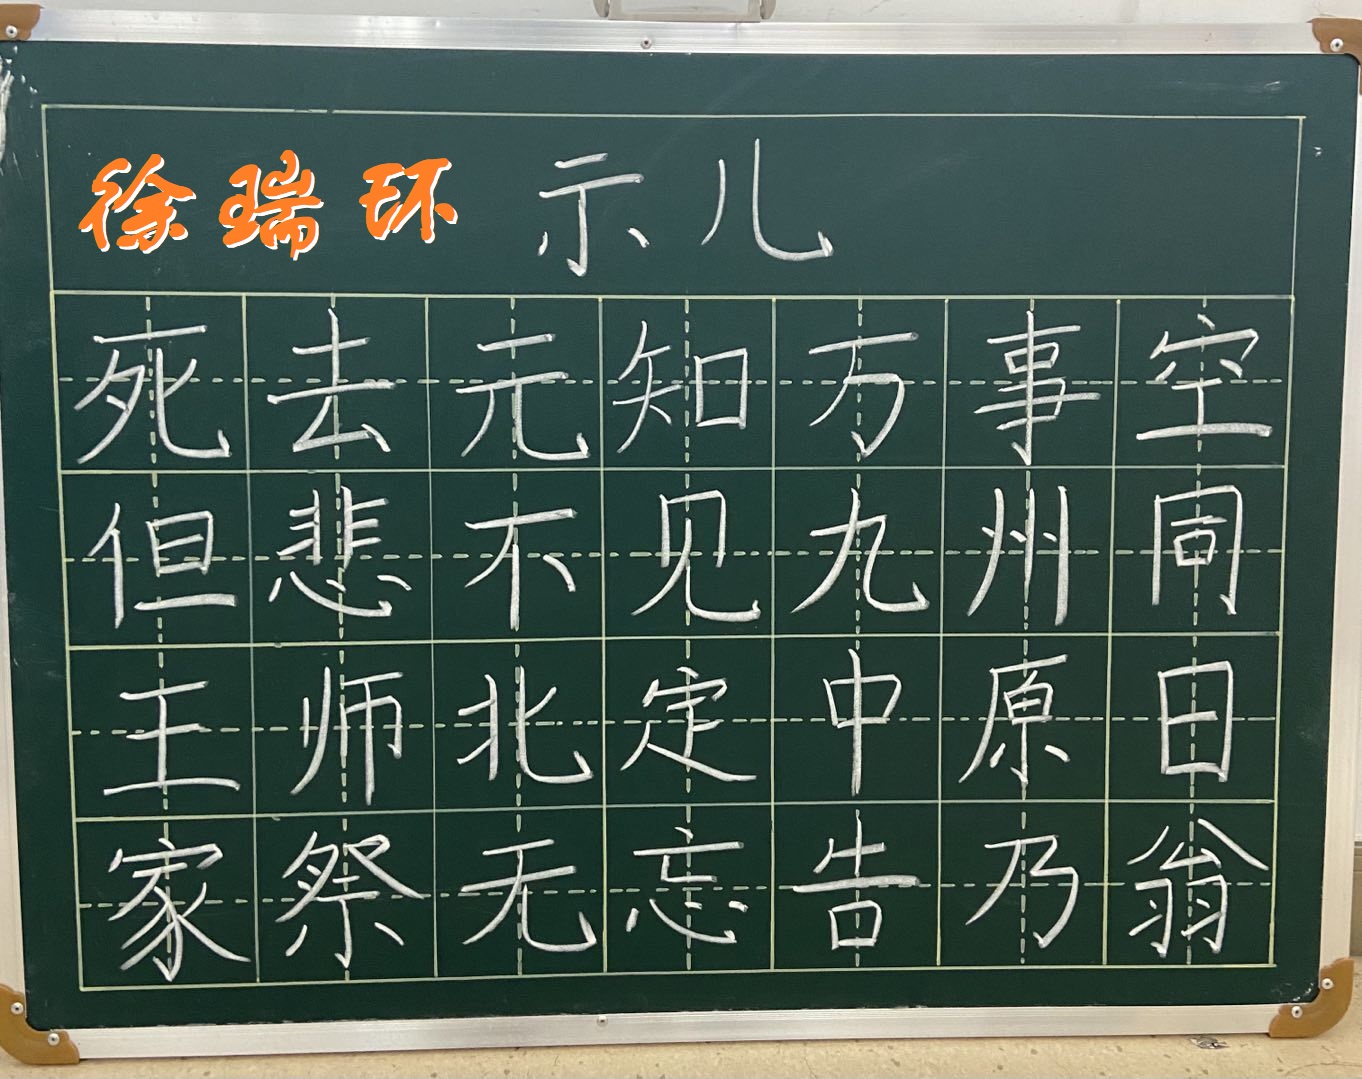 徐瑞环 示儿
死去元知万事空
但悲不见九州同
王师北定中原日
家祭无忘告乃翁